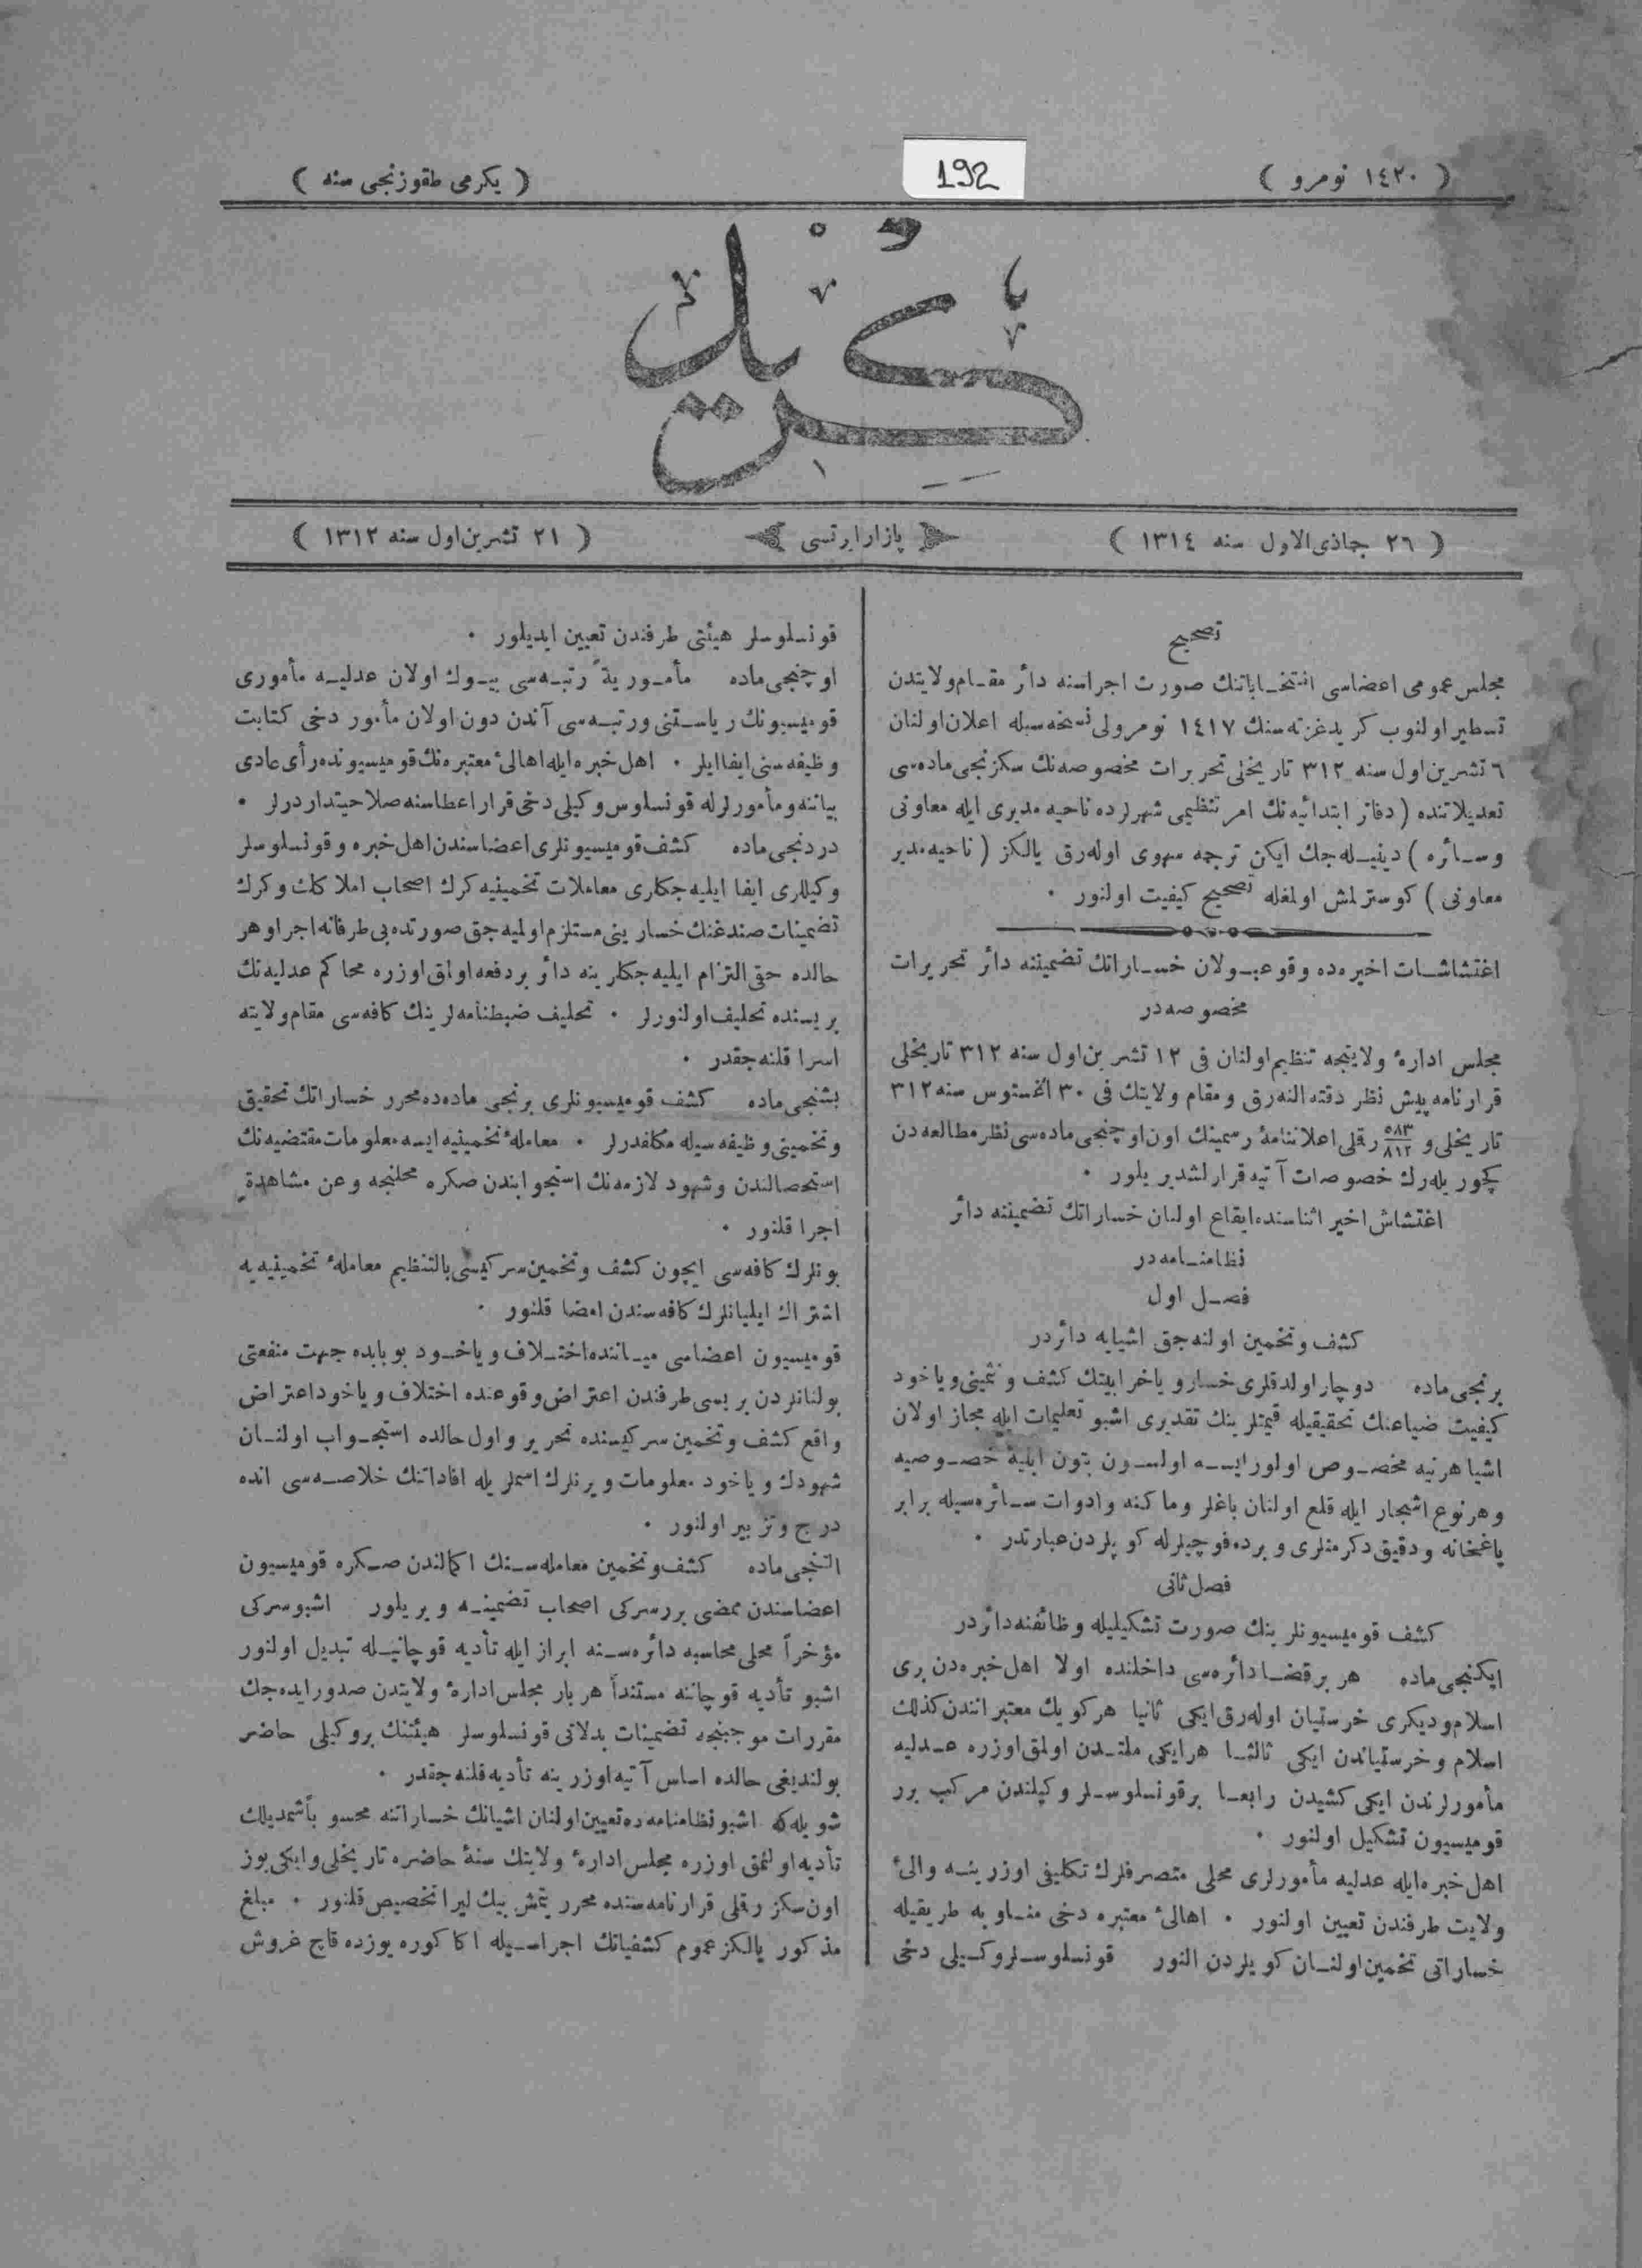 ( ١٤٢٠ نومرو )
192
( یکرمی طقوزنجی سنه )
کرید
( ٢٦ جماذی‌الاول سنه ١٣١٤ )
پازارایرتسی
( ٢١ تشرین‌اول سنه ١٣١٢ )
تصحیح
مجلس عمومی اعضاسی انتخـاباتنك صورت اجراسنه دائر مقـام‌ولایتدن
تسطیر اولنوب کرید غزته‌سنك ١٤١٧ نومرولی نسخه‌سیله اعلان اولنان
٦ تشرین‌اول سنه ٣١٢ تاریخلی تحریرات مخصوصه‌نك سکزنجی ماده‌سی
تعدیلاتنده ( دفاتر ابتدائیه‌نك امر تنظیمی شهرلرده ناحیه مدیری ایله معاونی
وسـائره ) دینیـله‌جك ایکن ترجمه سهوی اوله‌رق یالکز ( ناحیه‌مدیر
معاونی ) کوسترلمش اولمغله تصحیح کیفیت اولنور ٠
اغتشاشـات اخیره‌ده وقوعبـولان خسـاراتك تضمیننه دائر تحریرات
مخصوصه‌در
مجلس ادارهٔ ولایتجه تنظیم‌اولنان فی ١٢ تشرین‌اول سنه ٣١٢ تاریخلی
قرارنامه پیش نظر دقته‌النه‌رق و مقام ولایتك فی ٣٠ اغستوس سنه ٣١٢
تاریخلی و ٥٨٣/٨١٢ رقلی اعلاننامهٔ رسمینك اون‌اوچنجی ماده‌سی نظر مطالعه‌دن
کچوریله‌رك خصوصات آتیه قرارلشدیریلور ٠
اغتشاش اخیر اثناسنده‌ایقاع اولنان خساراتك تضمیننه دائر
نظامنـامه‌در
فصـل اول
کشف وتخمین اولنه‌جق اشیایه دائردر
برنجی ماده دوچار اولدقلری خسارو یاخرابیتك کشف و تثمینی ویاخود
کیفیت ضیاعنك تحقیقیله قیمتلرینك تقدیری اشبو تعلیمات ایله مجاز اولان
اشیا هرنیه مخصـوص اولورایسـه اولسـون بتون ابنیهٔ خصـوصیه
وهرنوع اشجار ایله قلع اولنان باغلر وماکنه وادوات سـائره‌سیله برابر
یاغخانه و دقیق دکرمنلری و برده‌فوچیلرله کوپلردن‌عبارتدر ٠
فصل ثانی
کشف قومیسیونلرینك صورت تشکیلیله وظائفنه‌دائردر
ایکنجی ماده هر برقضـا دائره‌سی داخلنده اولا اهل خبره‌دن بری
اسلام‌ودیکری خرستیان اوله‌رق ایکی ثانیا هرکویك معتبرانندن کذلك
اسلام و خرستیاندن ایکی ثالثـا هرایکی ملتـدن اولمق اوزره عـدلیه
مأمورلرندن ایکی کشیدن رابعـا برقونسلوسـلر وکیلندن مرکب برر
قومیسیون تشکیل اولنور ٠
اهل خبره‌ایله عدلیه مأمورلری محلی متصرفلرك تکلیفی اوزرینـه والیٔ
ولایت طرفندن تعیین اولنور ٠ اهالیٔ معتبره دخی منـاوبه طریقیله
خساراتی تخمین‌اولنـان کویلردن النور قونسلوسـلروکیلی دخی
قونسلوسلر هیئتی طرفندن تعیین ایدیلور ٠
اوچنجی ماده مأموریةً رتبـه‌سی بیـوك اولان عدلیـه مأموری
قومیسیونك ریاسـتنی ورتبـه‌سی آندن دون اولان مأمور دخی کتابت
وظیفه‌سنی ایفا ایلر ٠ اهل خبره‌ایله اهالیٔ معتبره‌نك قومیسیونده رأی عادی
بیاننه و مأمورلرله قونسلوس وکیلی دخی قرار اعطاسنه صلاحیتداردرلر ٠
دردنجی ماده کشف قومیسیونلری اعضاسندن اهل خبره و قونسلوسلر
وکیللری ایفا ایلیه‌جکلری معاملات تخمینیه کرك اصحاب املاکك و کرك
تضمینات صندغنك خسارینی مستلزم اولمیه‌جق صورتده بی طرفانه اجرا و هر
حالده حقی التزام ایلیه‌جکلرینه دائر بردفعه اولمق اوزره محاکم عدلیه‌نك
بریسنده تحلیف اولنورلر ٠ تحلیف ضبطنامه‌لرینك کافه‌سی مقام ولایته
اسرا قلنه‌جقدر ٠
بشنجی ماده کشف قومیسیونلری برنجی ماده‌ده محرر خساراتك تحقیق
وتخمینی وظیفه‌سیله مکلفدرلر ٠ معاملهٔ تخمینیه ایسه معلومات مقتضیه‌نك
استحصالندن و شهود لازمه‌نك استجوابندن صکره محلنجه وعن مشاهدةٍ
اجرا قلنور ٠
بونلرك کافه‌سی ایچون کشف وتخمین سرکیسی بالتنظیم معاملهٔ تخمینیه‌یه
اشتراك ایلیانلرك کافه‌سندن امضا قلنور ٠
قومیسیون اعضاسی میـاننده اختـلاف ویاخـود بوبابده جهت منفعتی
بولنانلردن بریسی طرفندن اعتراض وقوعنده اختلاف ویاخود اعتراض
واقع کشف وتخمین سرکیسنده تحریر و اول حالده استجـواب اولنـان
شهودك ویاخود معلومات ویرنلرك اسملریله افاداتنك خلاصـه‌سی انده
درج وتزبیر اولنور ٠
التنجی ماده کشف وتخمین معامله‌سـنك اکمالندن صـکره قومیسیون
اعضاسندن ممضی بررسرکی اصحاب تضمینـه ویریلور اشبوسرکی
مؤخراً محلی محاسبه دائره‌سـنه ابراز ایله تأدیه قوچانیـله تبدیل اولنور
اشبو تأدیه قوچاننه مستنداً هربار مجلس ادارهٔ ولایتدن صدور ایده‌جك
مقررات موجبنجه تضمینات بدلاتی قونسلوسلر هیئتنك بروکیلی حاضر
بولندیغی حالده اساس آتیه اوزرینه تأدیه قلنه‌جقدر ٠
شویله‌که اشبو نظامنامه‌ده تعیین اولنان اشیانك خساراتنه محسوباً شمدیلك
تأدیه اولنمق اوزره مجلس ادارهٔ ولایتك سنهٔ حاضره تاریخلی و ایکی یوز
اون سکز رقلی قرارنامه‌سنده محرر یتمش بیك لیرا تخصیص قلنور ٠ مبلغ
مذکور یالکز عموم کشفیاتك اجراسـیله اکا کوره یوزده قاچ غروش